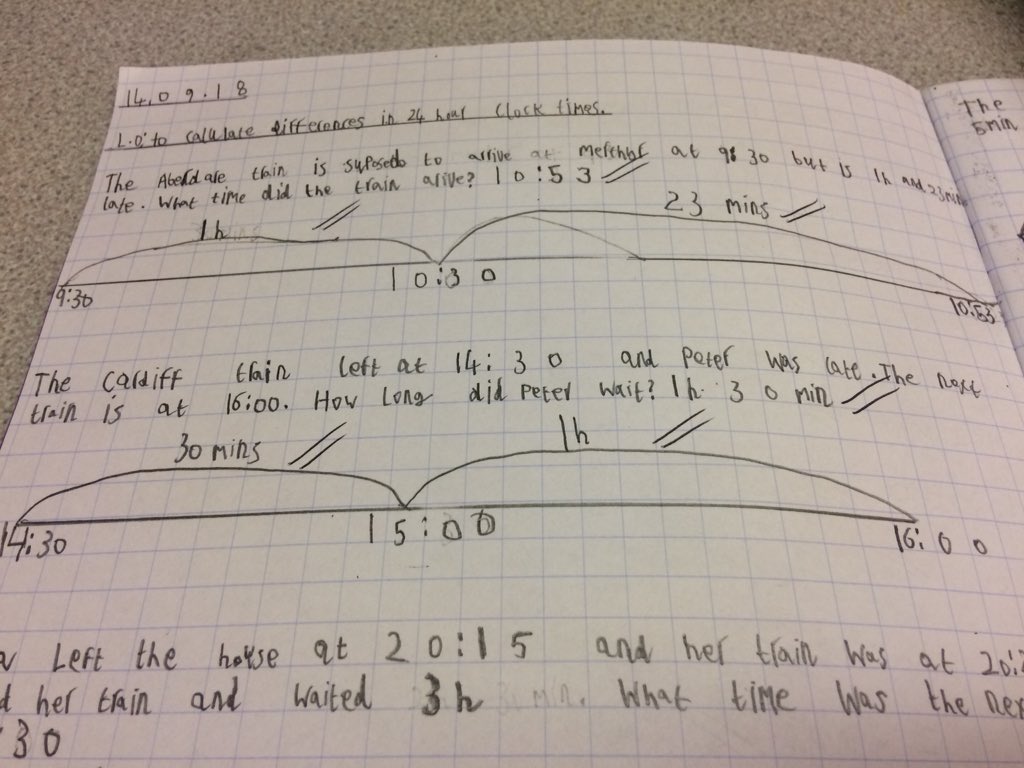 14.09.18
L.O: to calulate differences in 24 hour clock times.
The Aberdare train is suposedo to arrive at at 9:30 but is 1h and 23 min
late. What time did the train arive? 10:53
1h 23 mins
9:30 10:30 10:53
The Cardiff train left at 14:30 and peter was late. The next
train is at 16:00. How long did Peter wait? 1h 30 min
30 mins 1h
14:30 15:00 16:00
Left the house at 20:15 and her train was at
her train and waited 3h min. What time was the
30
The
5min